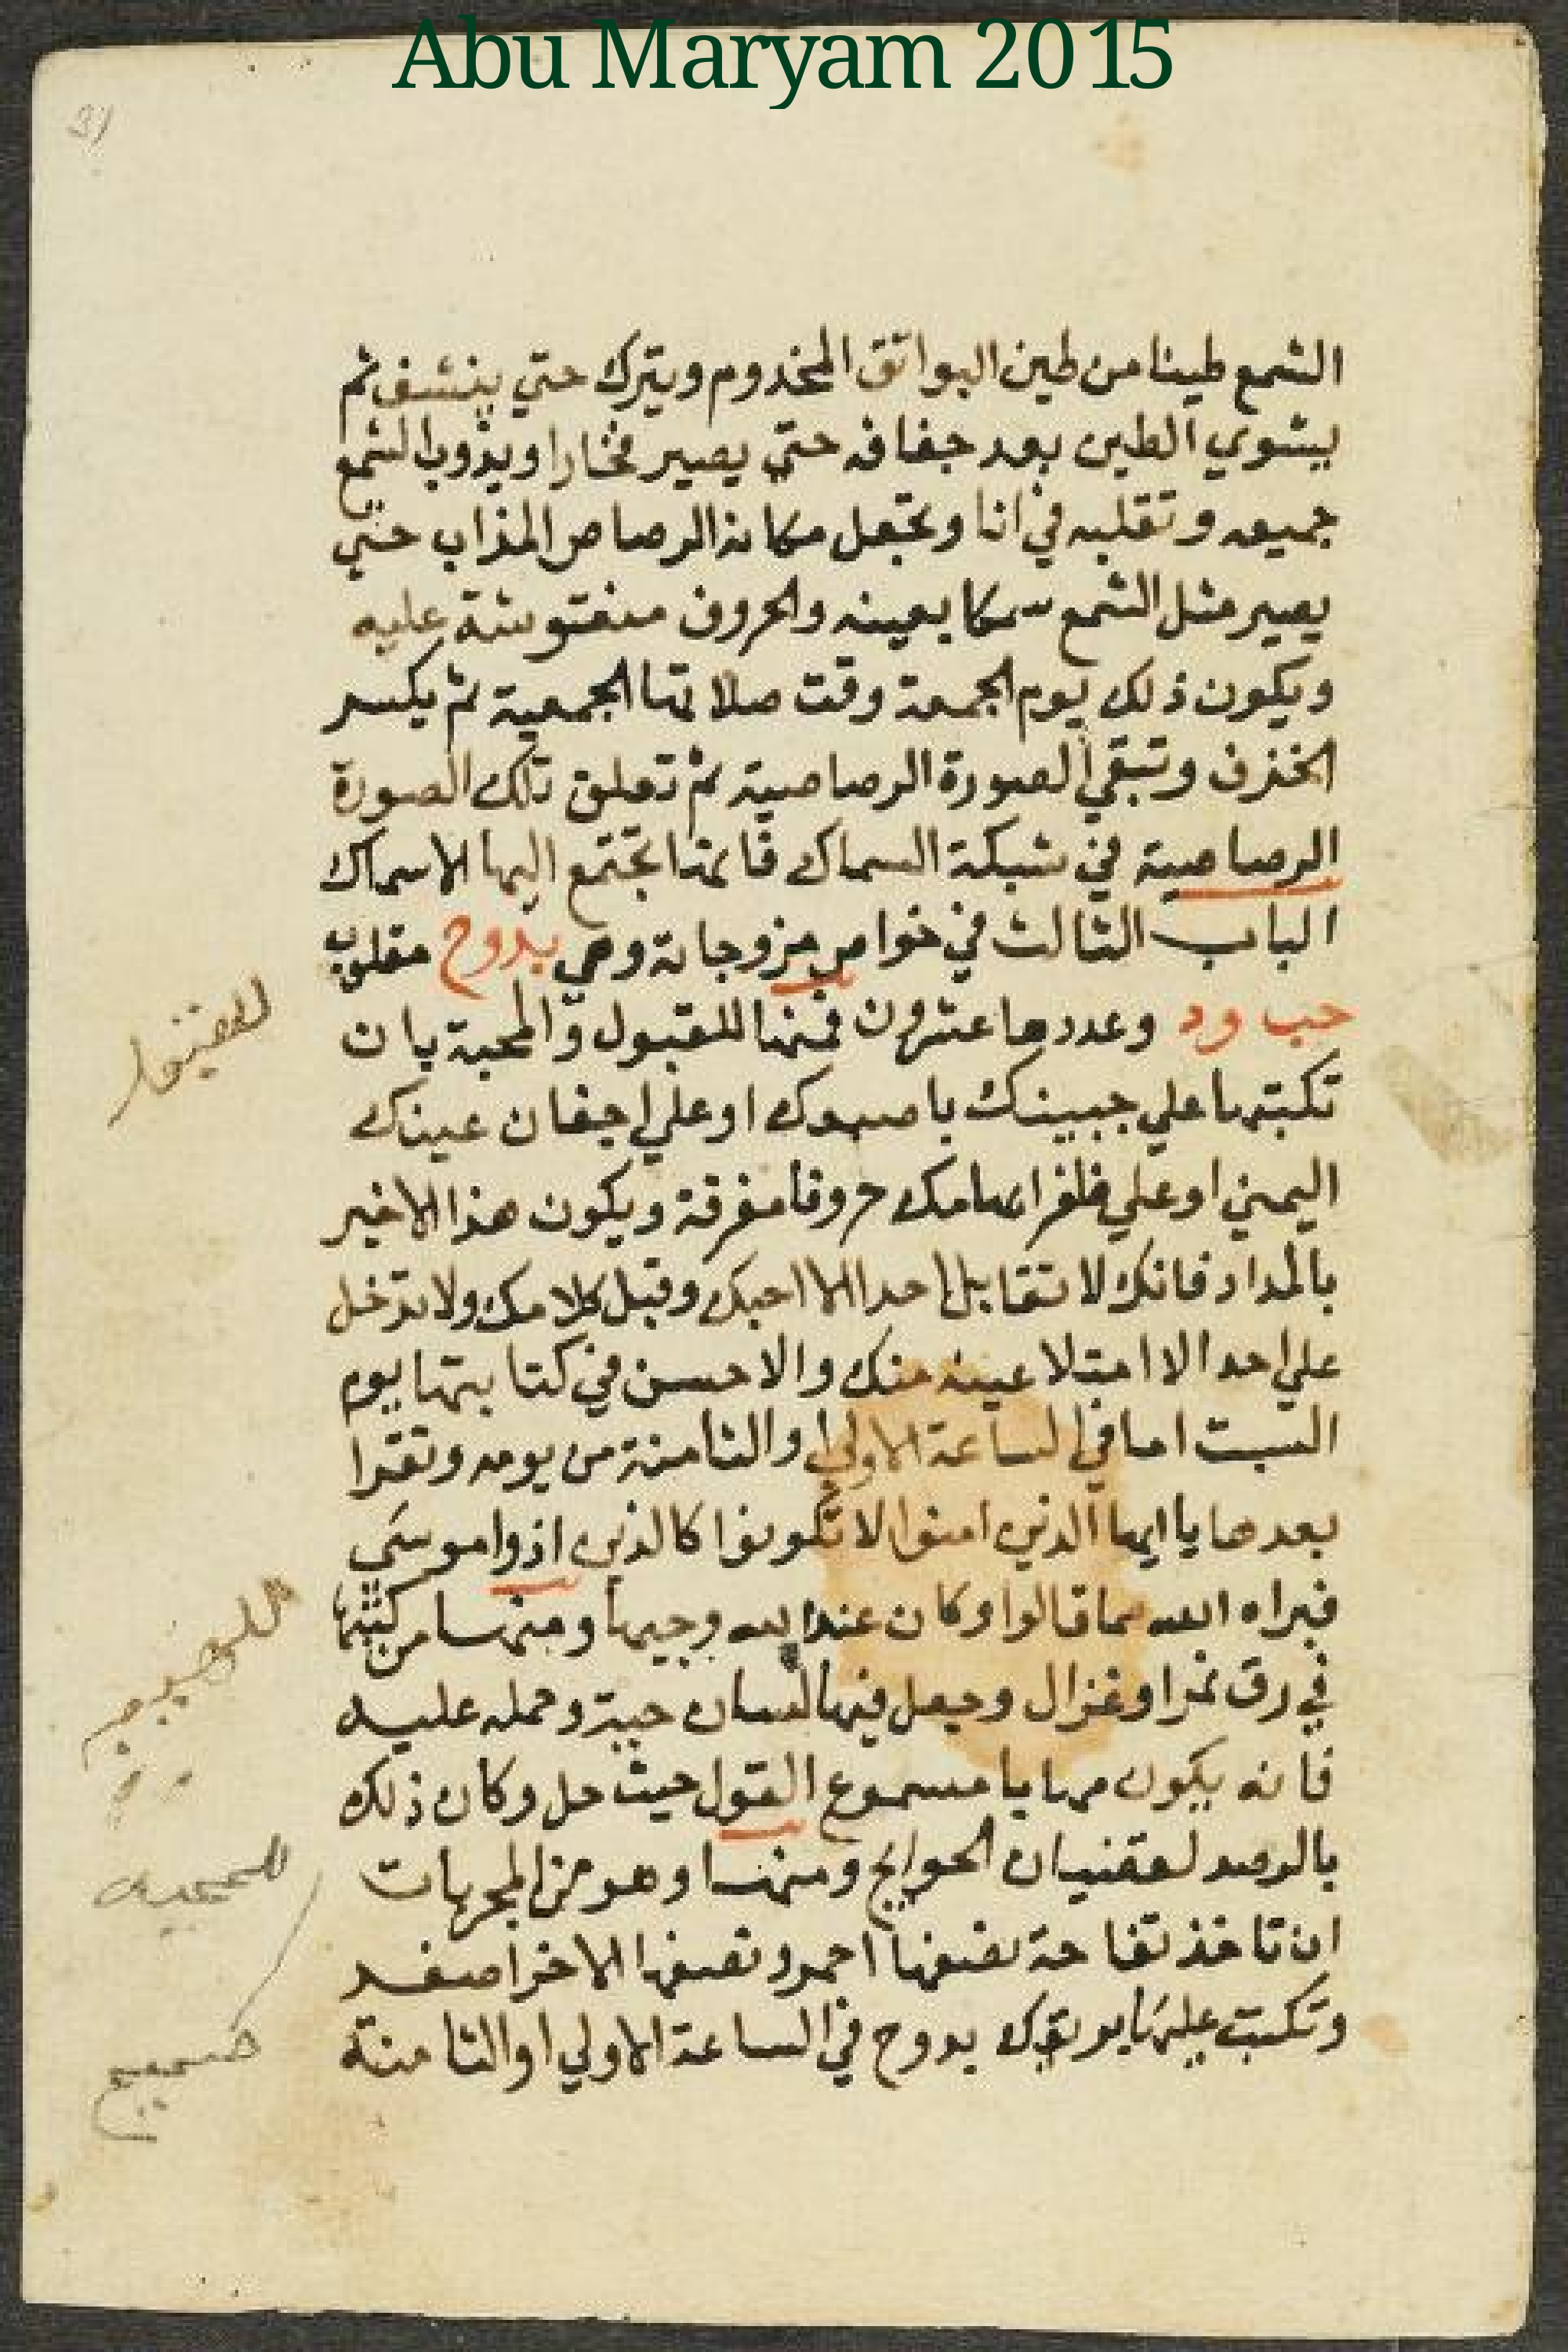 Abu Maryam 2015
31
الشمع طينا من طين البواتق المخدوم ويترك حتي ينشف ثم
يشوي الطين بعد جفافه حتي يصير فخارا ويذوب الشمع
جميعه وتقلبه في انا وتجعل مكانه الرصاص المذاب حتي
يصير مثل الشمع سمكا بعينه والحروف منقوشة عليه
ويكون ذلك يوم الجمعة وقت صلاتها الجمعية ثم يكسر
الخزف وتبقي الصورة الرصاصية ثم تعلق تلك الصورة
الرصاصية في شبكة السماك فانها تجتمع اليها الاسماك
الباب الثالث في خواص مزوجاته وهي بدوح مقلوب
حب ود وعددها عشرون فمنها للقبول والمحبة بان
تكتبها علي جبينك باصبعك او علي اجفان عينك
اليمني او علي ظفر ابهامك حروفا مفرقة ويكون هذا الاخير
بالمداد فانك لا تقابل احدا الا احبك وقبل كلامك ولا تدخل
علي احد الا امتلا عينه منك والاحسن في كتابتها يوم
السبت اما في الساعة الاولي والثامنة من يومه وتقرا
بعدها يا ايها الذين امنوا لا تكونوا كالذين اذوا موسي
فبراه الله مما قالوا وكان عند الله وجيها ومنها من كتبها
في رق نمر او غزال وجعل فيها لسان حية وحمله عليه
فانه يكون مهابا مسموع القول حيث حل وكان ذلك
بالرصد لقضيان الحوايج ومنها وهو من المجربات
ان تاخذ تفاحة نصفها احمر ونصفها الاخر اصفر
وتكتب عليها بدوح في الساعة الاولي او الثامنة
للقبول
للمحبه
صحيح